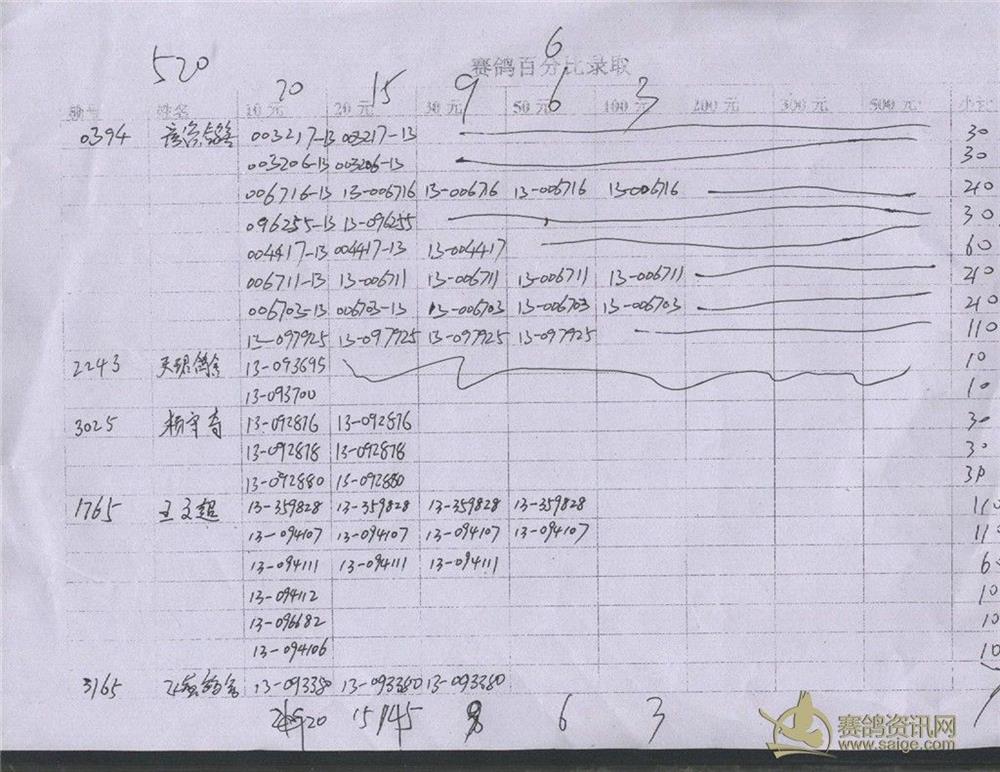 6
520 赛鸽百分比录取
20 15 9 6 3
姓名 10元 20元 30元 50元 100元 200元 300元 500元
0394 003217-13 003217-13 30
003206-13 003206-13 30
006716-13 13-006716 13-006716 13-006716 13-006716 210
096255-13 13-096255 30
004417-13 004417-13 13-004417 60
006711-13 13-006711 13-006711 13-006711 13-006711 210
006703-13 006703-13 13-006703 13-006703 13-006703 210
13-097925 13-097925 13-097925 13-097925 110
2243 13-093695 10
13-093700 10
3025 杨守奇 13-092876 13-092876 30
13-092878 13-092878 30
13-092880 13-092880 30
1765 王文超 13-359828 13-359828 13-359828 13-359828 110
13-094107 13-094107 13-094107 13-094107 11
13-094111 13-094111 13-094111 6
13-094112 10
13-096682 10
13-094106 10
3165 13-093380 13-093380 13-093380
20 15 6 3
赛鸽资讯网
www.saige.com